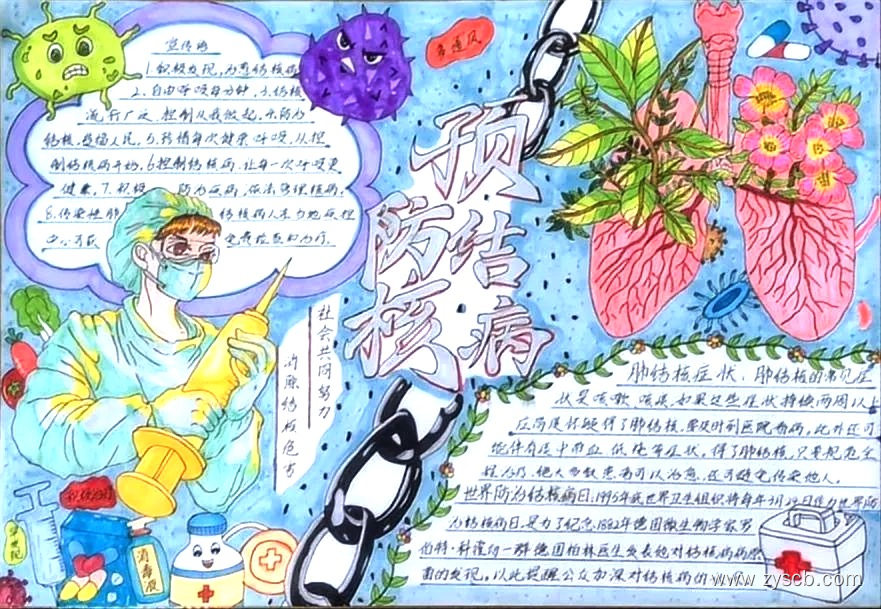 宣传语
1.积极发现,为患结核病
2.自由呼吸每分钟,3.结核
流行广泛,控制从我做起,4.防治
结核,造福人民,5.珍惜每次健康呼吸,从控
制结核病开始,6.控制结核病,让每一次呼吸更
健康,7.积极 防治疾病,依法管理结核病,
8.传染性肺 结核病人不力地应担
免费检查和治疗.
多通风
预
防结
核病
社会共同努力
消除结核危害
积极治疗
消毒液
肺结核症状:肺结核的常见症
状是咳嗽、咳痰,如果这些症状持续两周以上
应高度怀疑得了肺结核,要及时到医院看病,此外还可
能伴有痰中带血,低烧等症状,得了肺结核,只要规范全
程治疗,绝大多数患者可以治愈,还可避免传染他人.
世界防治结核病日:1995年底世界卫生组织将每年3月24日作为世界防
治结核病日,是为了纪念1882年德国微生物学家罗
伯特·科霍向一群德国柏林医生发表他对结核病病原
菌的发现,以此提醒公众加深对结核病的
www.zyscb.com